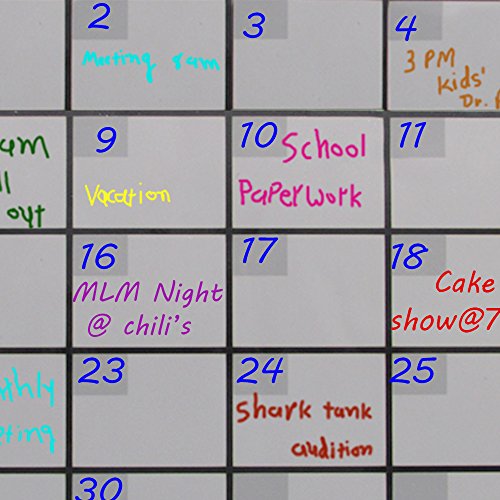 2
3
4
Meeting 8am
3 PM
Kids'
Dr.
out
9
Vacation
10
School
Paperwork
11
16
MLM Night
@ chili's
17
18
Cake
show@7
23
24
Shark tank
audition
25
30